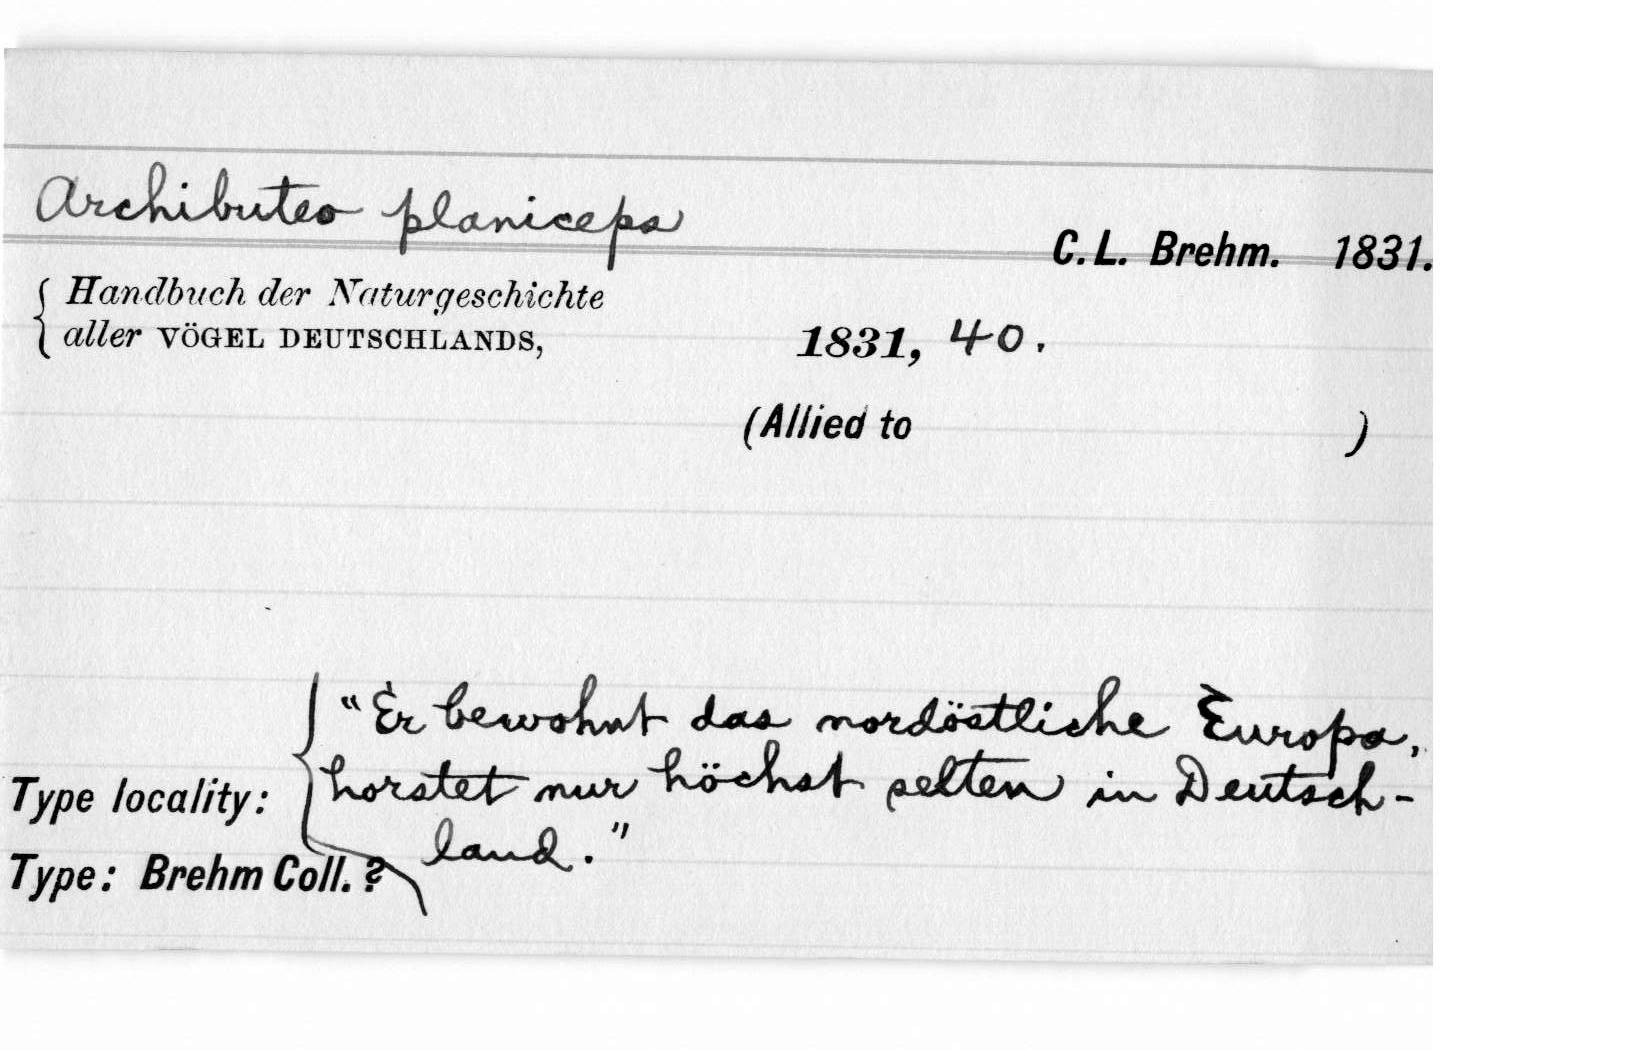 Archibuteo planiceps
C. L. Brehm. 1831.
Handbuch der Naturgeschichte
aller VÖGEL DEUTSCHLANDS, 1831, 40.
(Allied to )
"Er bewohnt das nordöstliche Europa,
Type locality: horstet nur höchst selten in Deutsch-
land."
Type: Brehm Coll. ?